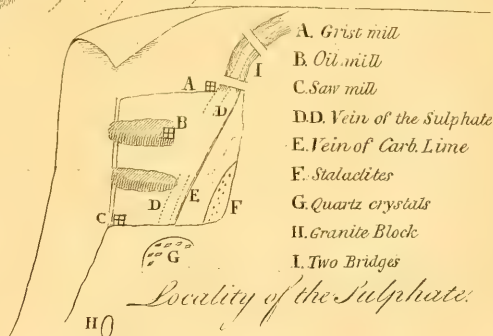 A. Grist mill
B. Oil mill
C. Saw mill
D.D. Vein of the Sulphate
E. Vein of Carb. Lime
F. Stalactites
G. Quartz crystals
H. Granite Block
I. Two Bridges
Locality of the Sulphate.
I
A
D
B
E
D
F
C
G
H